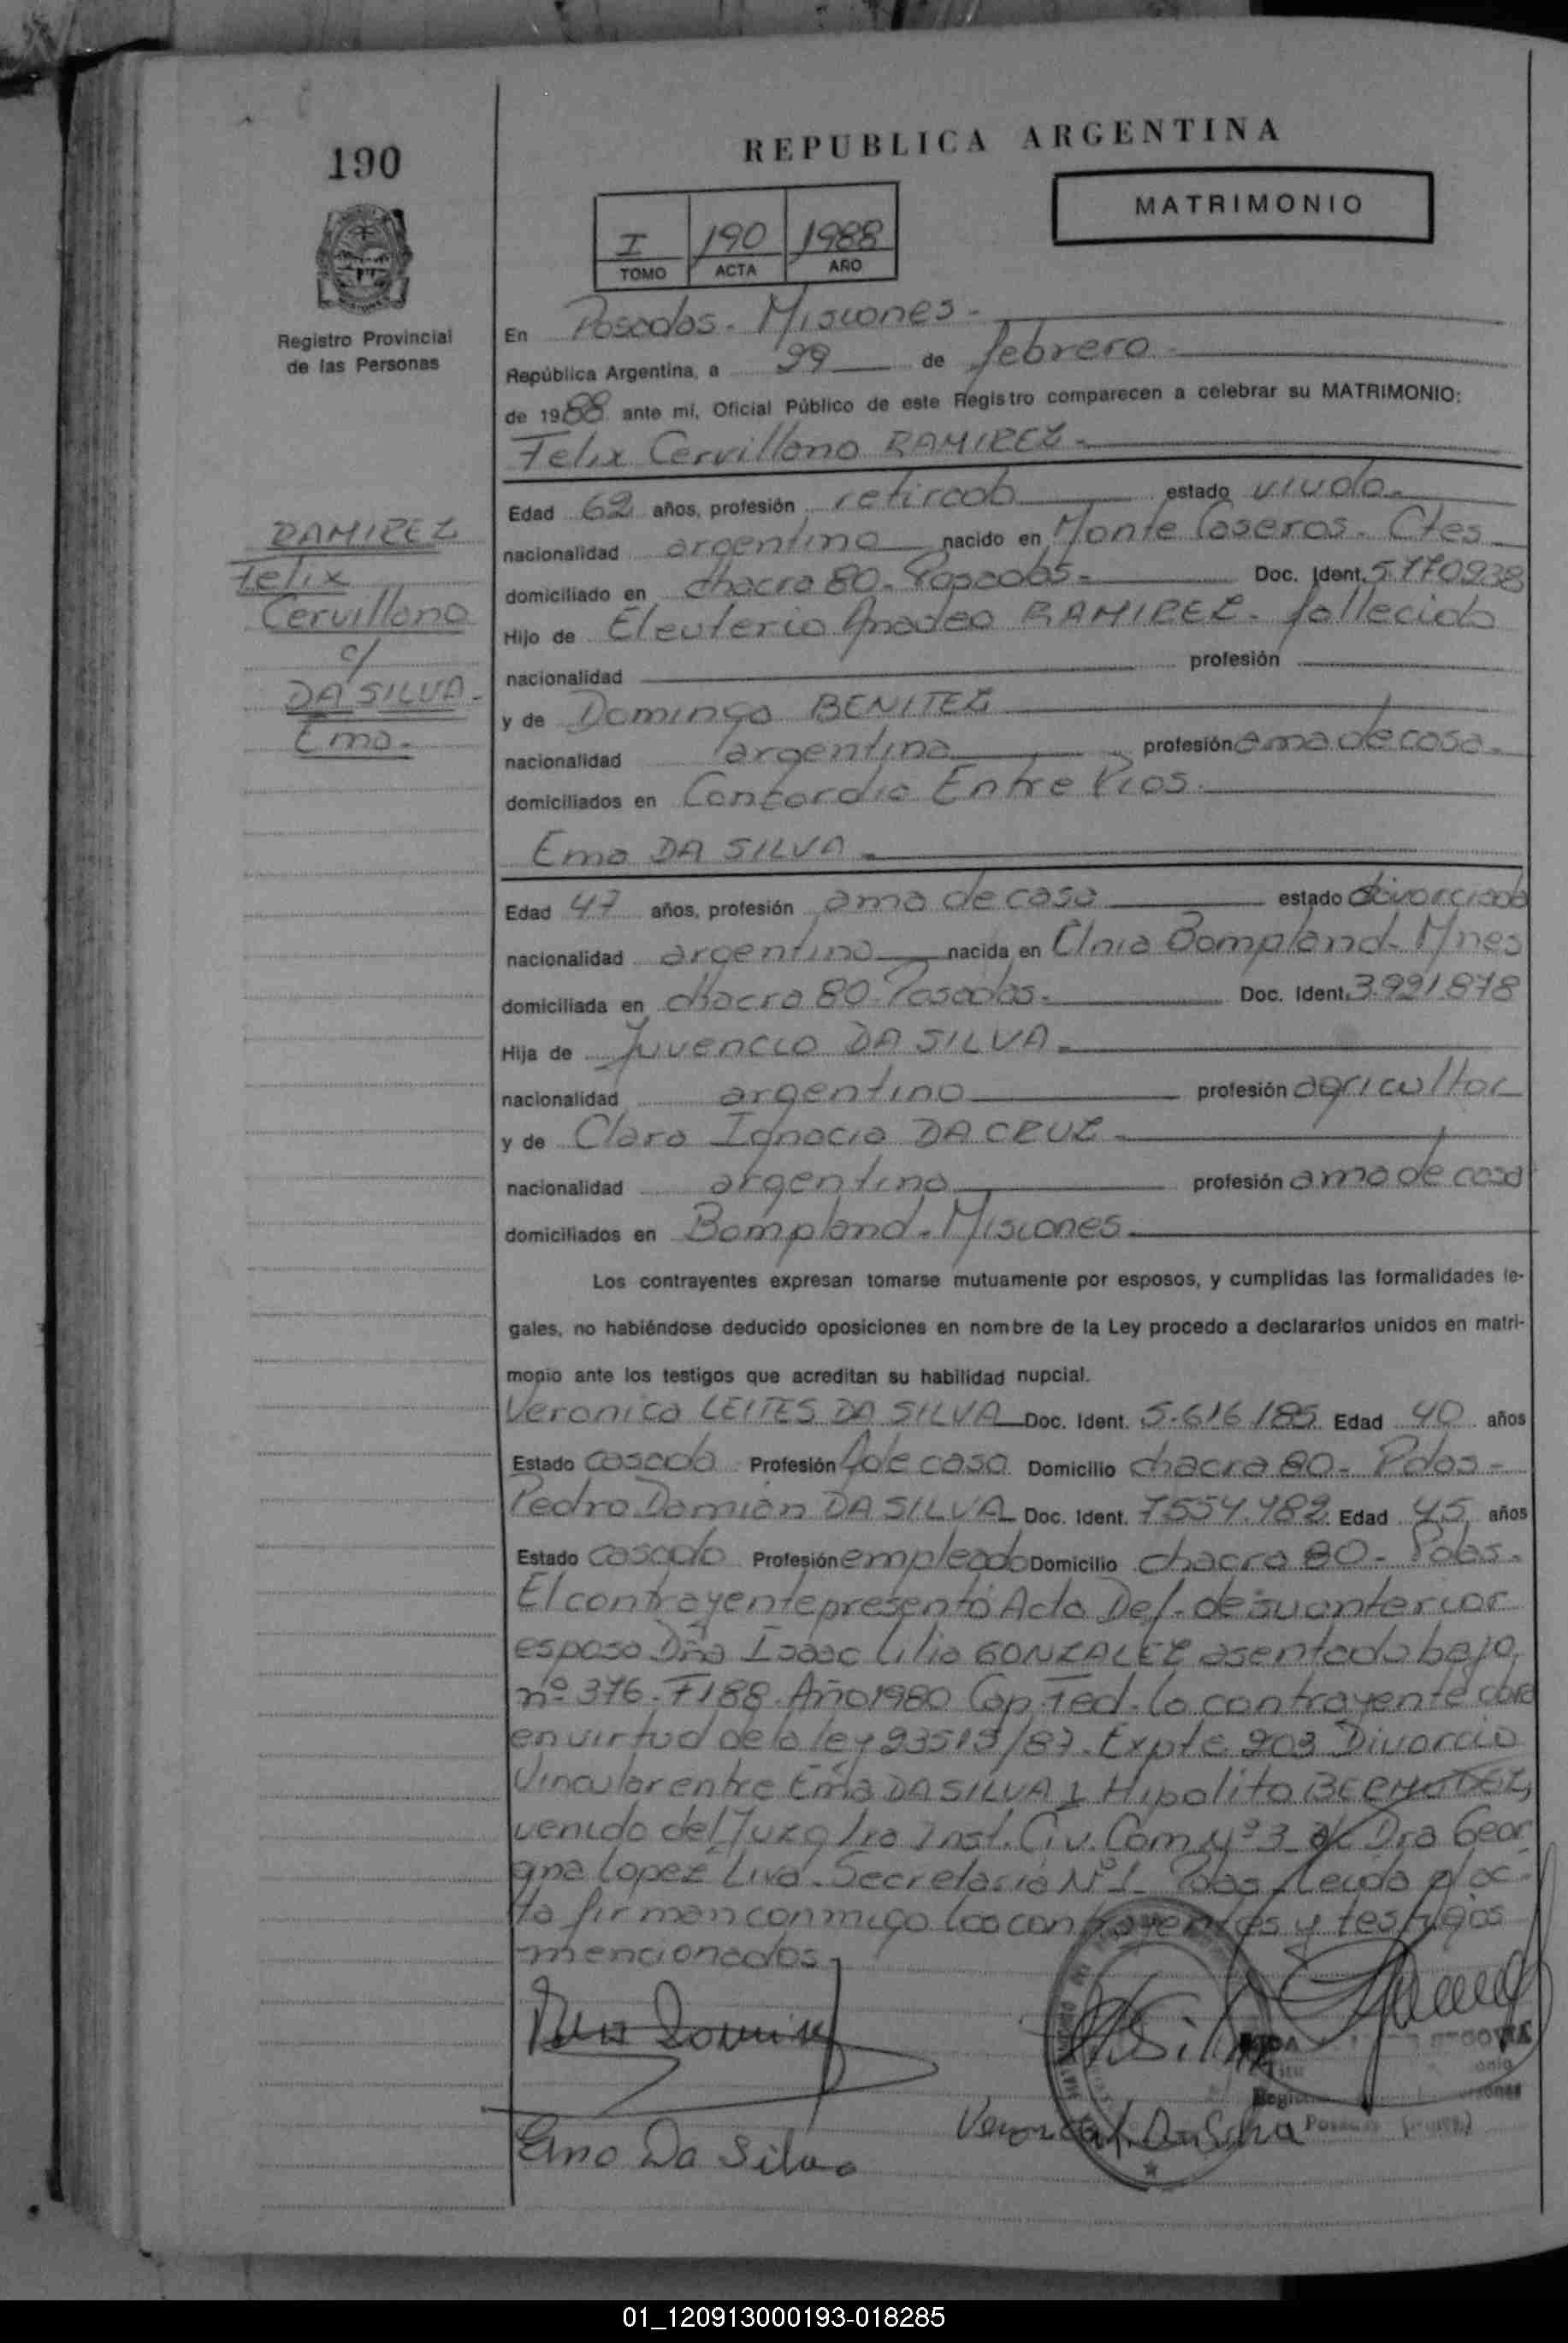 190
REPUBLICA ARGENTINA
MATRIMONIO
I 190 1988
TOMO ACTA AÑO
Registro Provincial
de las Personas
En Posadas - Misiones -
República Argentina, a 29 de febrero
de 1988 ante mí, Oficial Público de este Registro comparecen a celebrar su MATRIMONIO:
Felix Cervillano RAMIREZ -
Edad 62 años, profesión retirado estado viudo -
nacionalidad argentino nacido en Monte Caseros - Ctes
domiciliado en chacra 80 - Posadas - Doc. Ident. 5770938
Hijo de Eleuterio Amadeo RAMIREZ - fallecido
nacionalidad profesión
y de Dominga BENITEZ
nacionalidad argentina profesión ama de casa -
domiciliados en Concordia Entre Rios -
RAMIREZ
Felix
Cervillano
c/
DA SILVA -
Ema -
Ema DA SILVA -
Edad 47 años, profesión ama de casa estado divorciada
nacionalidad argentina nacida en Clnia Bompland - Mnes
domiciliada en chacra 80 - Posadas - Doc. Ident. 3.991878
Hija de Juvencio DA SILVA -
nacionalidad argentino profesión agricultor
y de Clara Ignacia DA CRUZ -
nacionalidad argentina profesión ama de casa
domiciliados en Bompland - Misiones -
Los contrayentes expresan tomarse mutuamente por esposos, y cumplidas las formalidades le-
gales, no habiéndose deducido oposiciones en nombre de la Ley procedo a declararlos unidos en matri-
monio ante los testigos que acreditan su habilidad nupcial.
Veronica LEITES DA SILVA Doc. Ident. 5.616.185 Edad 40 años
Estado casada Profesión A de casa Domicilio chacra 80 - Pdas -
Pedro Damián DA SILVA Doc. Ident. 7554.482 Edad 45 años
Estado casado Profesión empleado Domicilio chacra 80 - Pdas -
El contrayente presentó Acta Def. de su anterior
esposa Dña Isaac Lilia GONZALEZ asentada bajo
nº 376 - F188 - Año 1980 Cap. Fed. La contrayente
en virtud de la ley 23515/87 - Expte 203 Divorcio
Vincular entre Ema DA SILVA y Hipolito BERMUDEZ,
venido del Juzg 1ra Inst. Civ. Com Nº 3 Dra Geor
gina Lopez Liva - Secretaria Nº 1 Pdas Leida el ac-
ta firman conmigo los contrayentes y testigos
mencionados -
Ema Da Silva
Veronica L. Da Silva
01_120913000193-018285